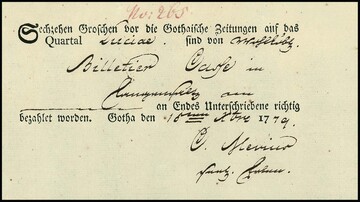 No: 268
Sechzehen Groschen vor die Gothaische Zeitungen auf das
Quartal Luciae. sind von
Billetier Casse in
an Endes Unterschriebene richtig
bezahlet worden. Gotha den 18 1779.
C. Mevius